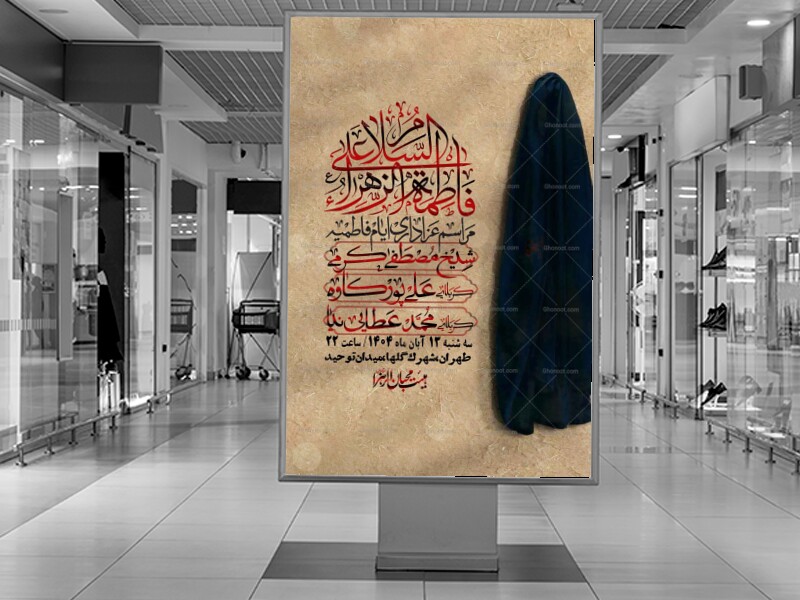 السلام علی
فاطمة الزهراء
مراسم عزاداری ایام فاطمیه
شیخ مصطفی کرمی
کربلایی علی پورکاوه
کربلایی محمد عطایی نیا
سه شنبه ۱۳ آبان ماه ۱۴۰۴ / ساعت ۲۲
طهران،شهرک گلها،میدان توحید
هیئت محبان الزهرا
Ghonoot.com